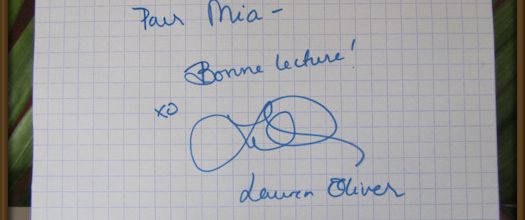 Pour Mia -
Bonne lecture!
xo
Lauren Oliver